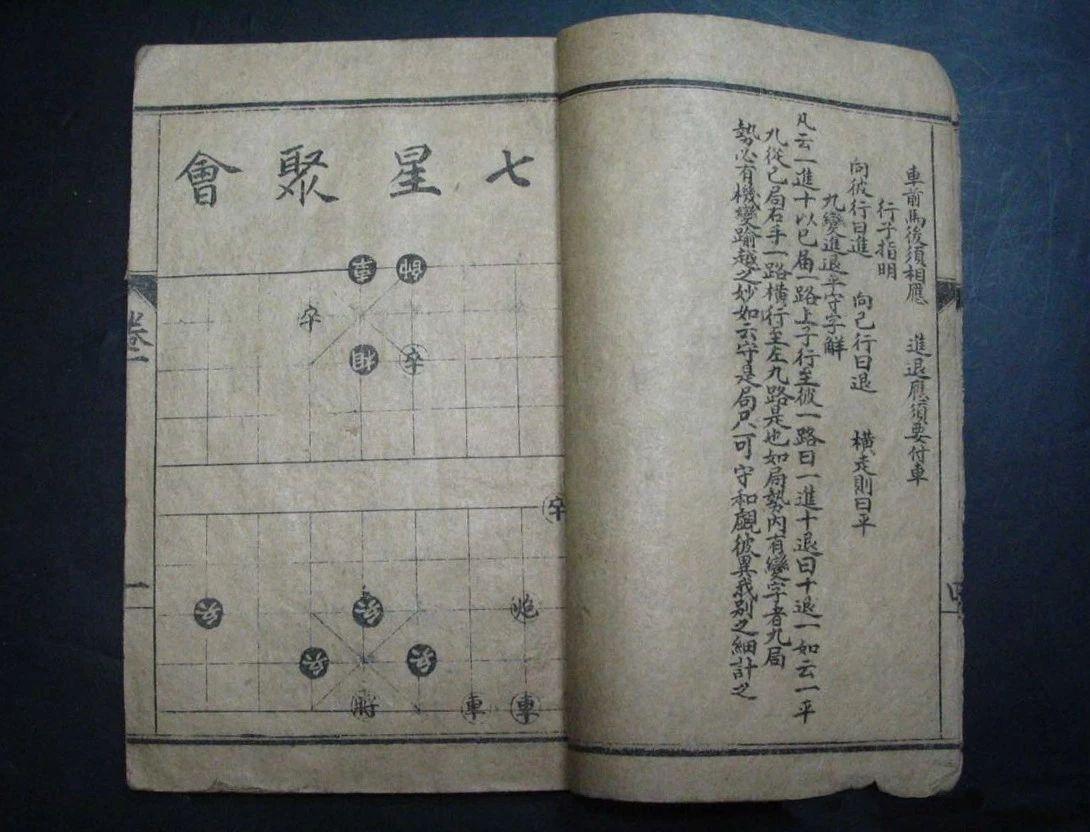 車前馬後須相應 進退應須要付車
行子指明
向彼行曰進 向己行曰退 橫走則曰平
九變進退平守字解
凡云一進十以已局一路上子行至彼一路曰一進十退曰十退一如云一平
九從己局右手一路橫行至左九路是也如局勢內有變字者九局
勢必有機變踰越之妙如云守是局只可守和觀彼異我別之細計之
七星聚會
車 帥
卒
卒
卒
兵 兵 炮
兵 兵
將 車 車
卷一
一